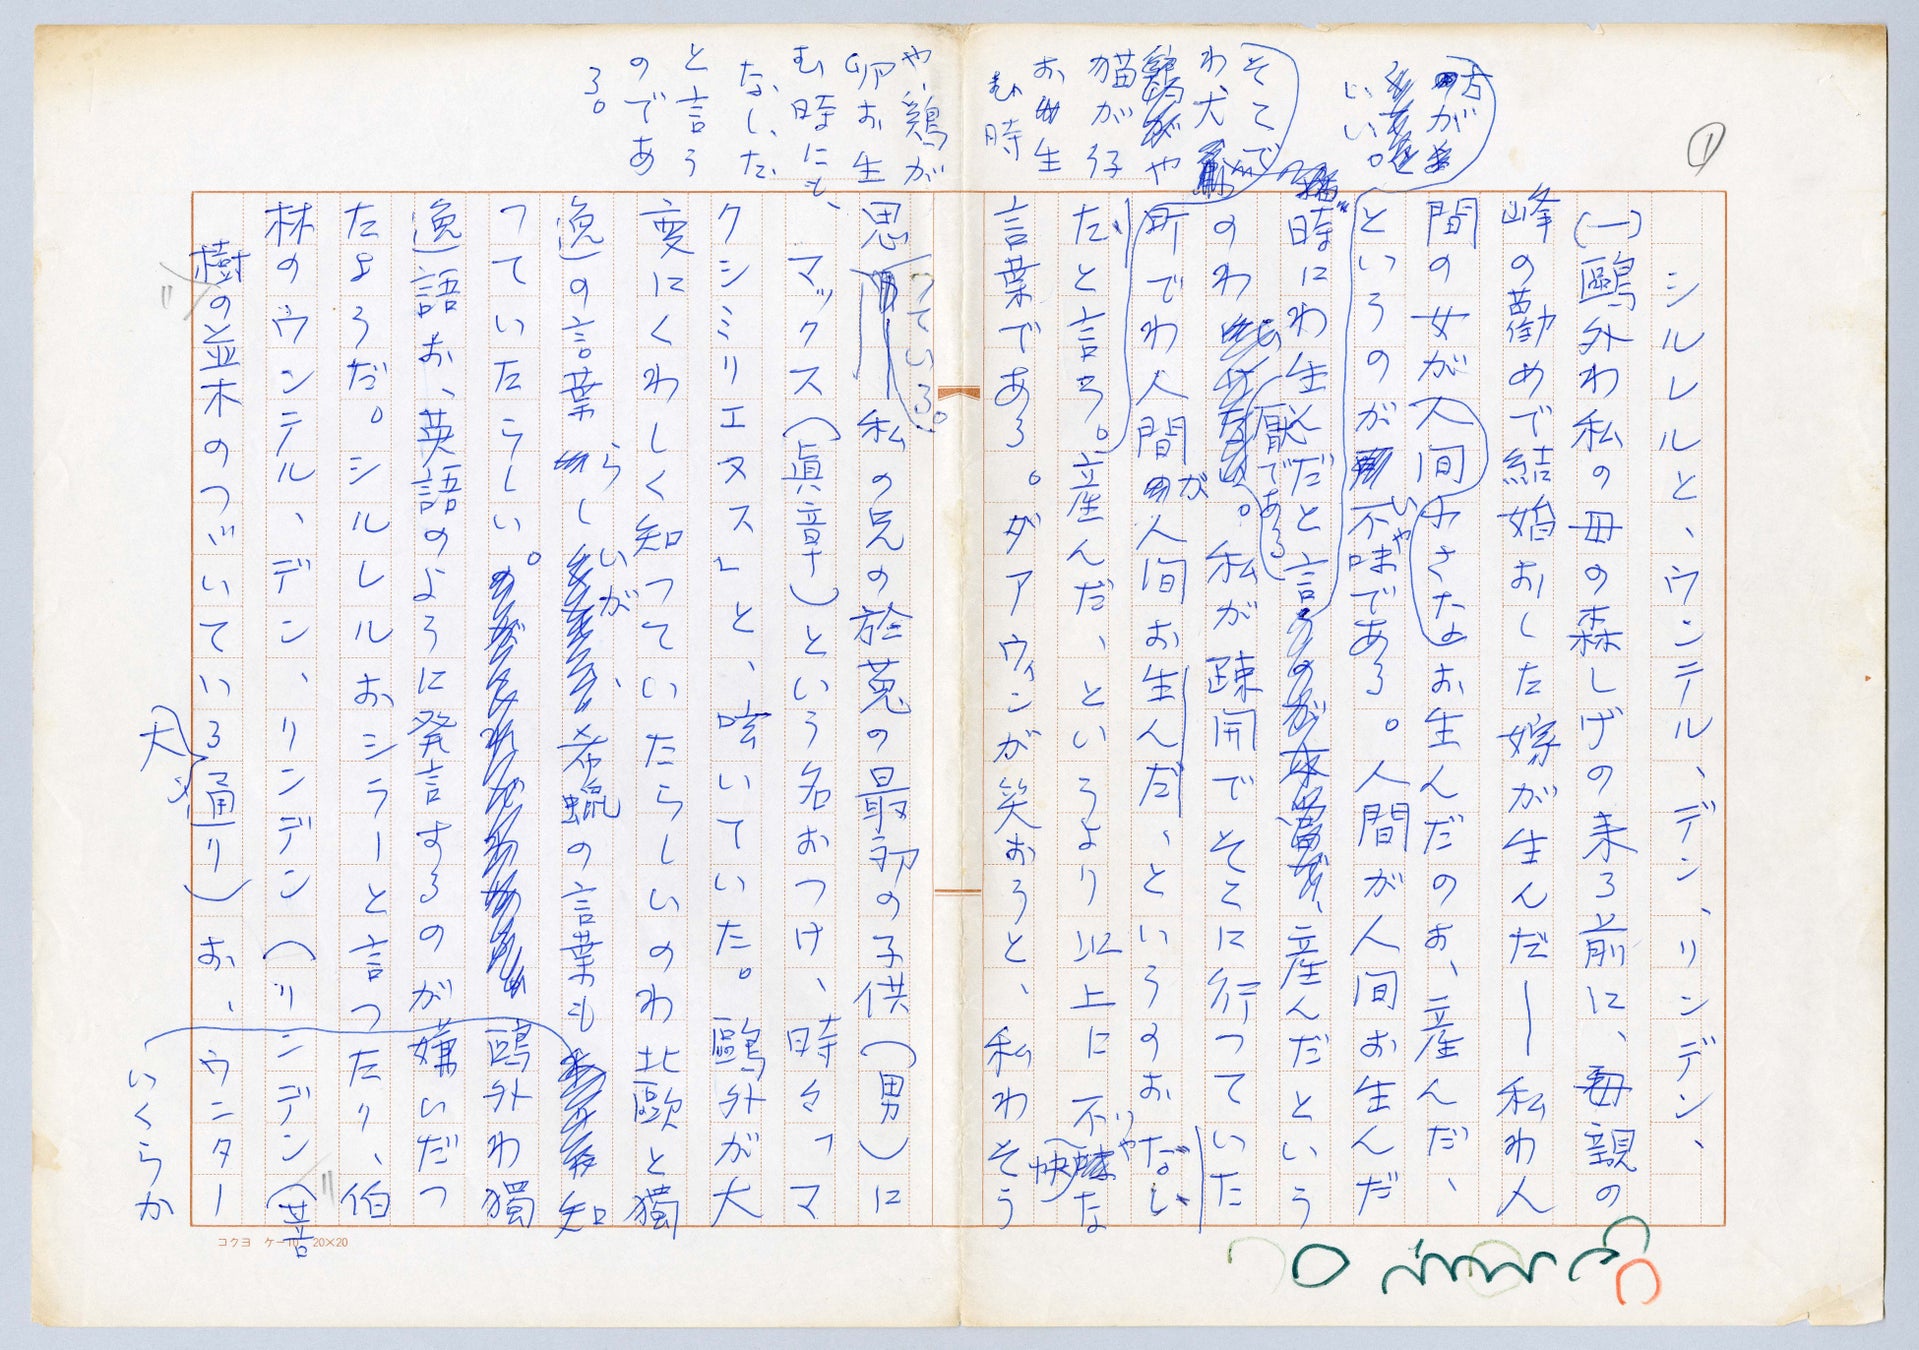 ①
シルレルと、ウンテル、デン、リンデン、
(一)鷗外わ私の母の森しげの来る前に、母親の
峰の勧めで結婚おした嫁が生んだ——私わ人
間の女が人間お生んだのお、産んだ、
というのが不味である。人間が人間お生んだ
時にわ生んだと言う、産んだという
のわ厭である。私が疎開でそこに行っていた
所でわ人間が人間お生んだ、というのおなし
たと言う。産んだ、というより以上に不快な
言葉である。ダアウィンが笑おうと、私わそう
思っている。私の兄の於菟の最初の子供(男)に
マックス(眞章)という名おつけ、時々「マ
クシミリエヌス」と、呟いていた。鷗外が大
変にくわしく知っていたらしいのわ北歐と獨
逸の言葉らしいが、希臘の言葉も知
っていたらしい。鷗外わ獨
逸語お、英語のように発言するのが嫌いだっ
たようだ。シルレルおシラーと言ったり、伯
林のウンテル、デン、リンデン(リンデン(菩
樹の並木のつづいている大通り)お、ウンター
いが
いや
いや
そこで
わ犬
や
猫が仔
お生
む時
や、鶏が
卵お生
む時にも、
なした
と言う
のであ
る。
いい。
いくらか
コクヨ ケー10 20×20